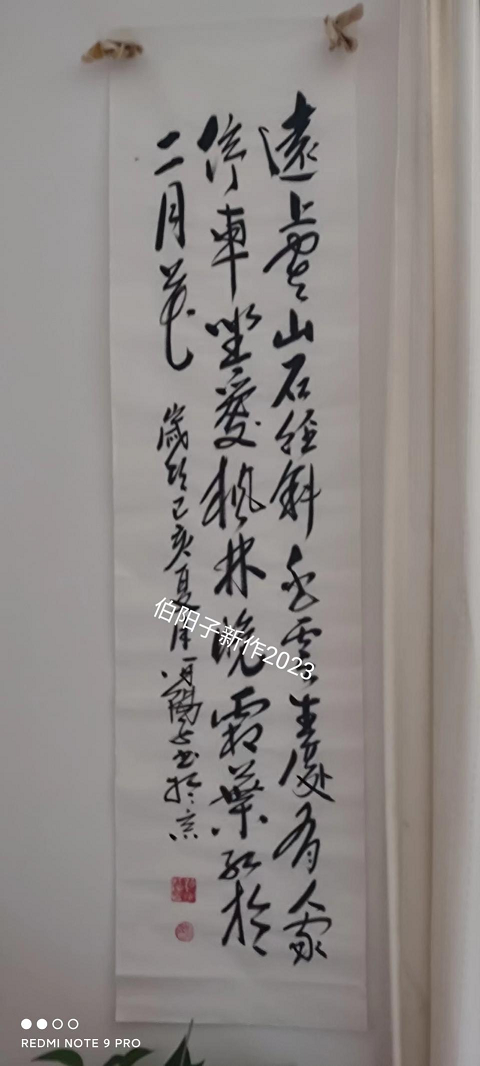 遠上寒山石徑斜白雲生處有人家
停車坐愛楓林晚霜葉紅於
二月花
歲於己亥夏 陽子書於京
伯阳子新作2023
REDMI NOTE 9 PRO